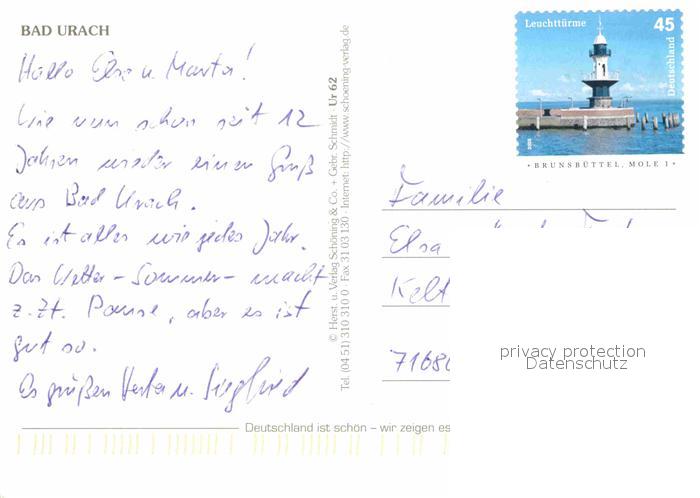 BAD URACH
Hallo Elsa u. Marta!
Wie nun schon seit 12
Jahren wieder einen Gruß
aus Bad Urach.
Es ist alles wie jedes Jahr.
Das Wetter – Sommer – macht
z. Zt. Pause, aber es ist
gut so.
Es grüßen Herta u. Siegfried
Deutschland ist schön – wir zeigen es
© Herst. u. Verlag Schöning & Co. + Gebr. Schmidt Ur 62
Tel. (04 51) 310 310 0 · Fax 31 03 130 · Internet: http://www.schoening-verlag.de
Leuchttürme 45
Deutschland
BRUNSBÜTTEL, MOLE 1
Familie
Elsa
Kelt
7168
privacy protection
Datenschutz